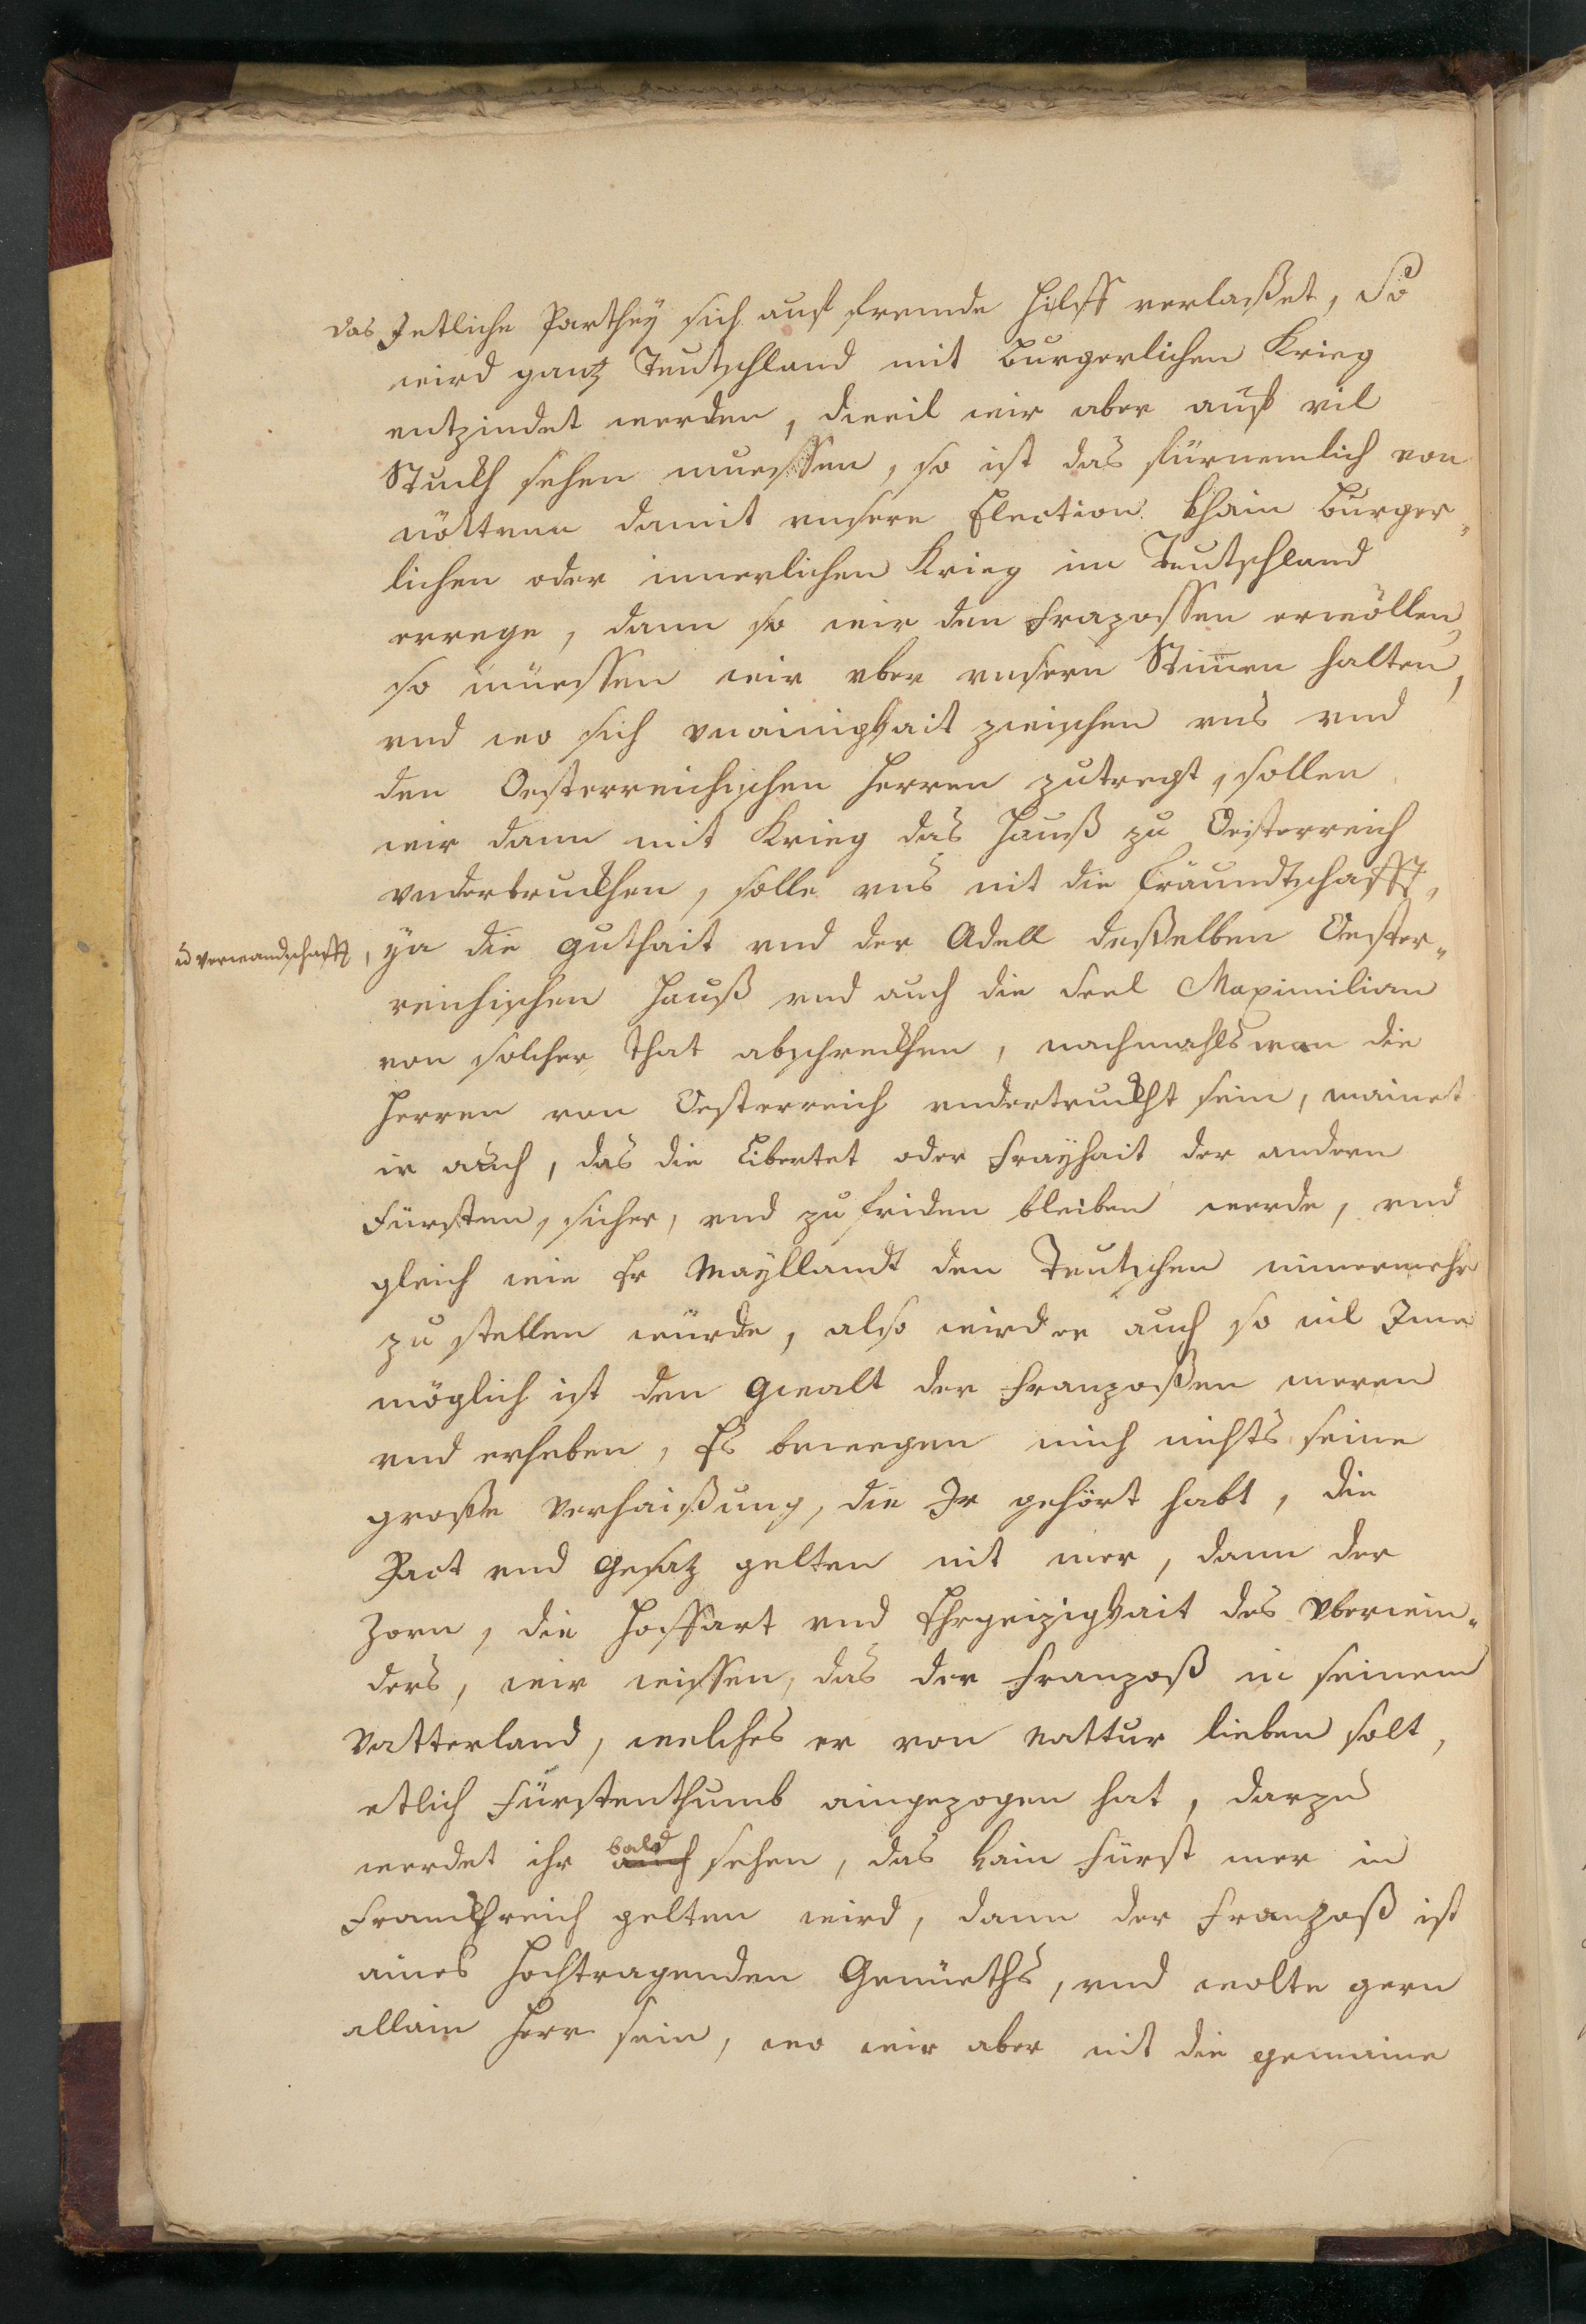 das Jetliche Parthey sich auf fremde Hilff verlaßet, So
wird gantz Teutschland mit Burgerlichen Krieg
entzindet werden, dieweil wir aber auf vil
Stuckh sehen muessen, so ist das fürnemlich von
nötten damit unsere Election khain Burger„
lichen oder innerlichen Krieg im Teutschland
errege, dann so wir den Frazossen erwöllen,
so müessen wir ober unsern Stimen halten,
vnd wo sich vnainigkait zwischen uns vnd
den Oesterreichischen Herren zutregt, sollen
wir dann mit Krieg das Hauß zu Oesterreich
vnderdruckhen, solle vns nit die Fräundtschafft,
vd Verwandschafft, ya die Guthait vnd der Adell deßelben Oester„
reichischen Hauß vnd auch die Seel Maximilian
von solcher that abschreckhen, nachmahls wan die
Herren von Oesterreich undertruckht sein, mainet
ir auch, das die Libertet oder Frayhait der andern
Fürsten, sicher, vnd zu friden bleiben werde, vnd
gleich wie Er Mayllandt den Teutschen nimermehr
zu stellen würde, also wird er auch so vil Ime
möglich ist den Gwalt der Franzoßen meren
vnd erheben, Es bewegen mich nichts seine
große Verhaißung, die Ir gehört habt, die
Pact vnd Gesaz gelten nit mer, dann der
Zorn, die Hoffart vnd Ehrgeizigkait des Vberwin„
ders, wir wissen, das der Franzoß in seinem
Vatterland, welches er von Nattur lieben solt,
etlich Fürstenthumb aingezogen hat, darzu
werdet ihr auch bald sehen, das kain Fürst mer in
Franckhreich gelten wird, dann der Franzoß ist
aines Hochtragenden Gemüeths, vnd wolte gern
allain Herr sein, wo wir aber nit die gemaine